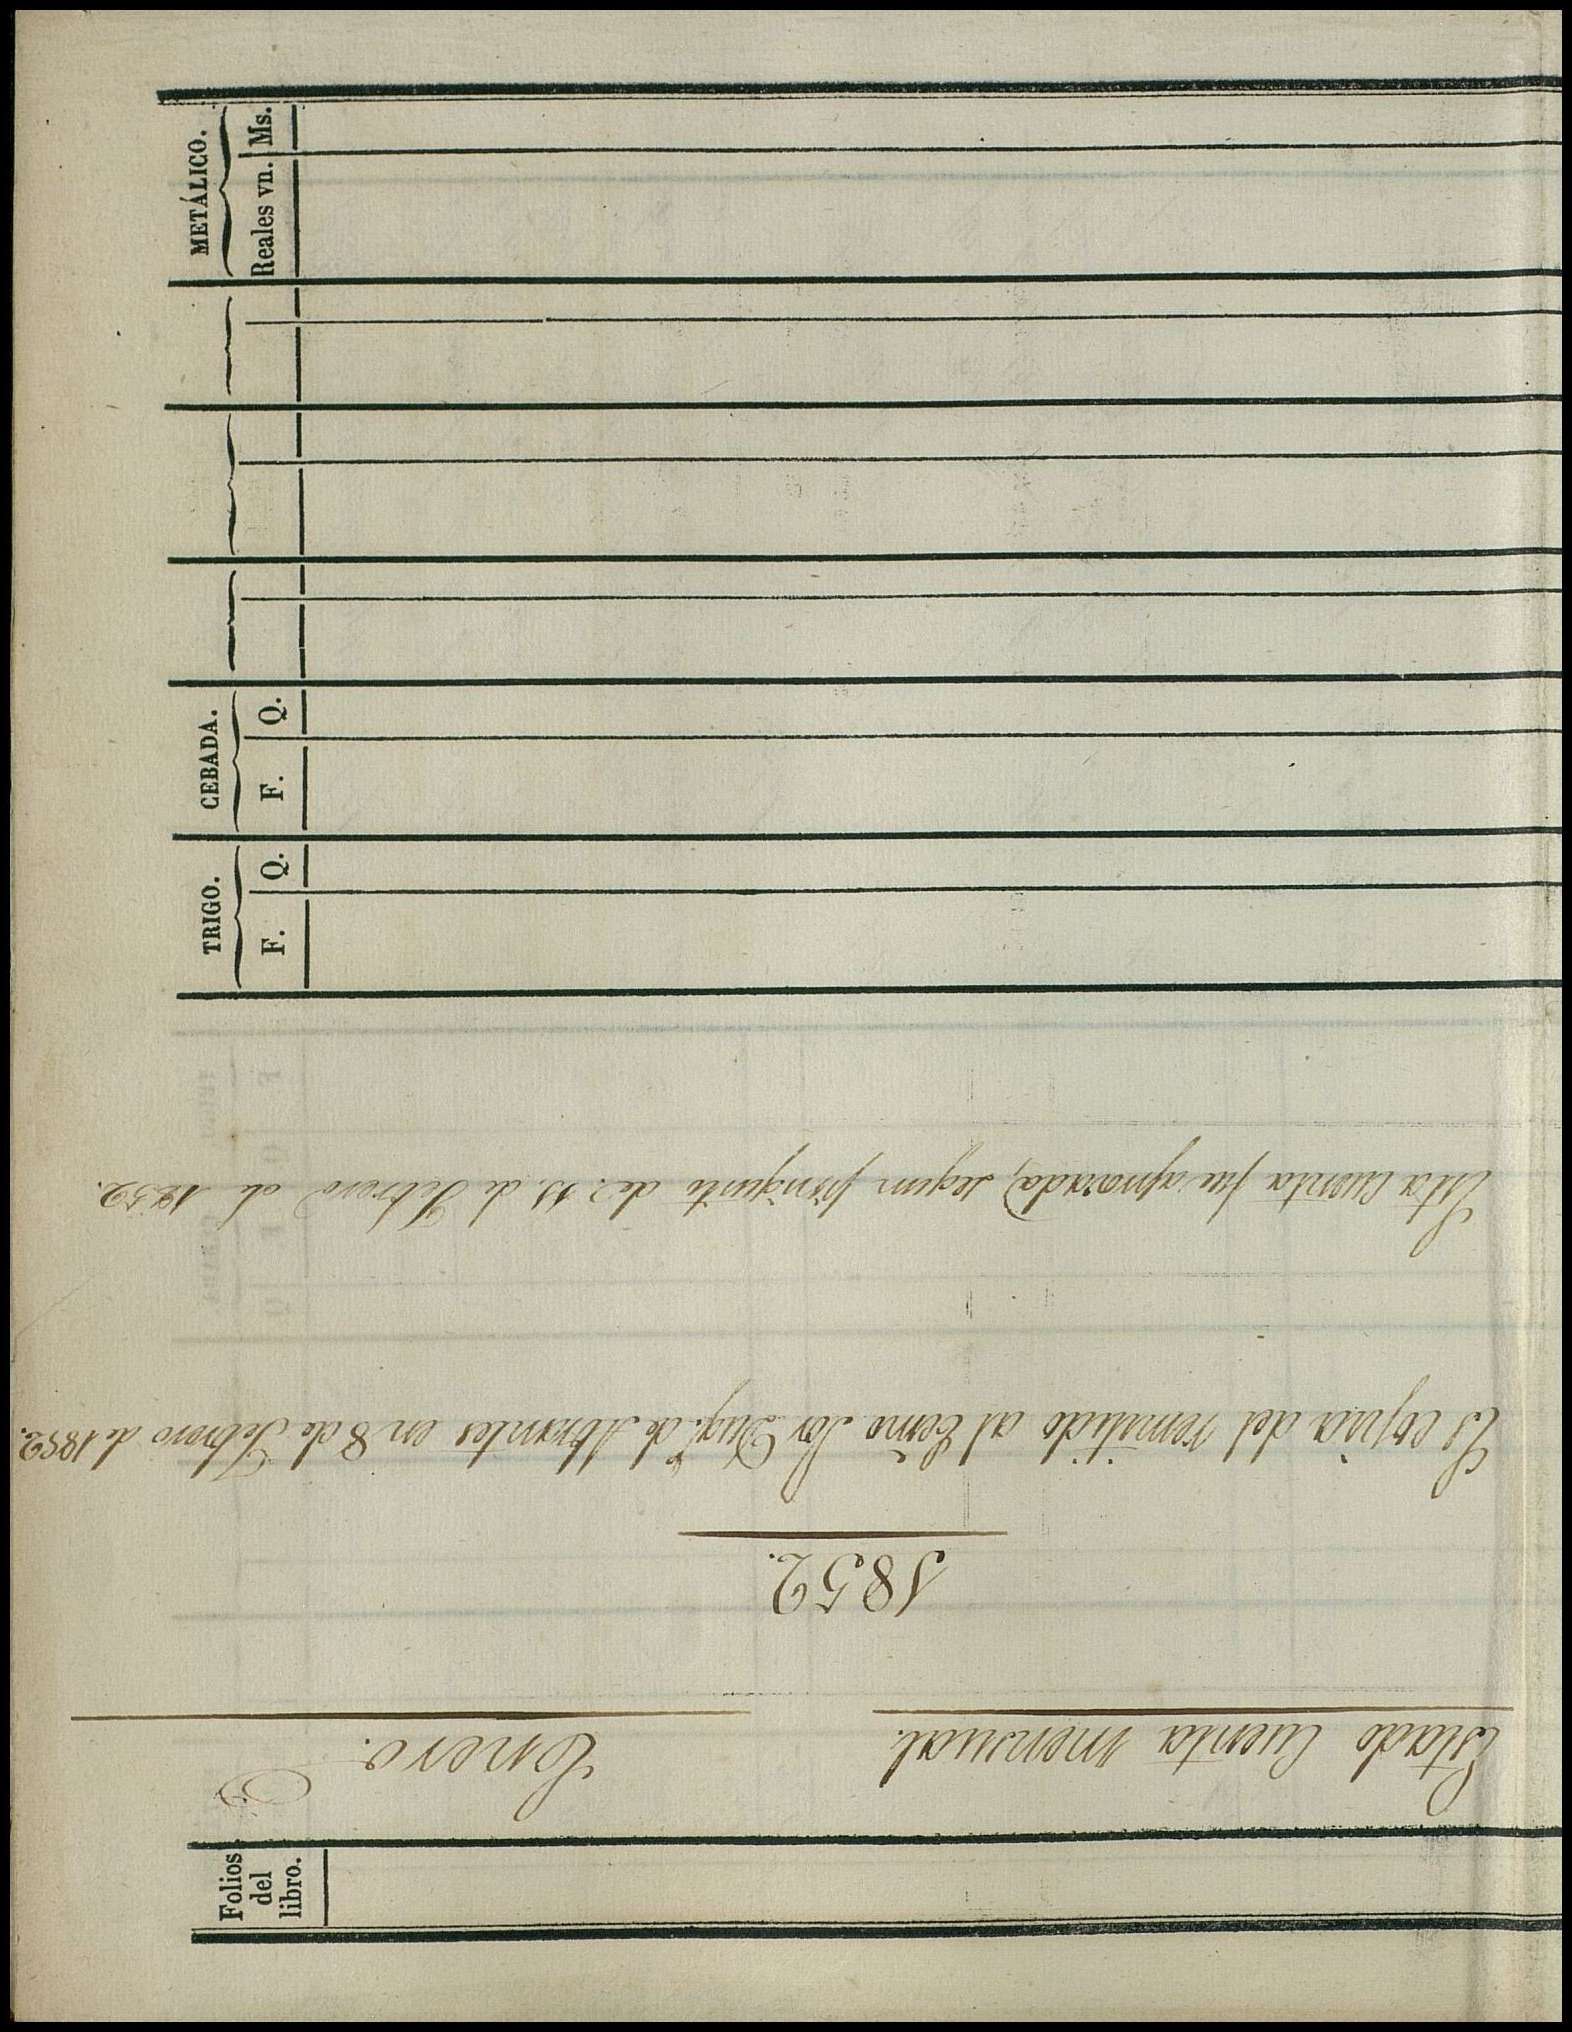 Estado Cuenta mensual.
Enero.
1852.
Es copia del remitido al Escmo Sor Duq.e de Abrantes en 8 de Febrero de 1852.
Esta cuenta fue aprovada, segun finiquito de 15. de Febrero de 1852.
Folios del libro.
TRIGO.
F. Q.
CEBADA.
F. Q.
METÁLICO.
Reales vn. Ms.